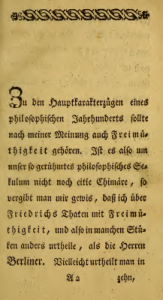 Zu den Hauptkarakterzügen eines
philosophischen Jahrhunderts sollte
nach meiner Meinung auch Freimü-
thigkeit gehören. Ist es also um
unser so gerühmtes philosophisches Se-
kulum nicht noch eitle Chimäre, so
vergibt man mir gewis, daß ich über
Friedrichs Thaten mit Freimü-
thigkeit, und also in manchen Stü-
ken anders urtheile, als die Herren
Berliner. Vielleicht urtheilt man in
A 2 zehn,